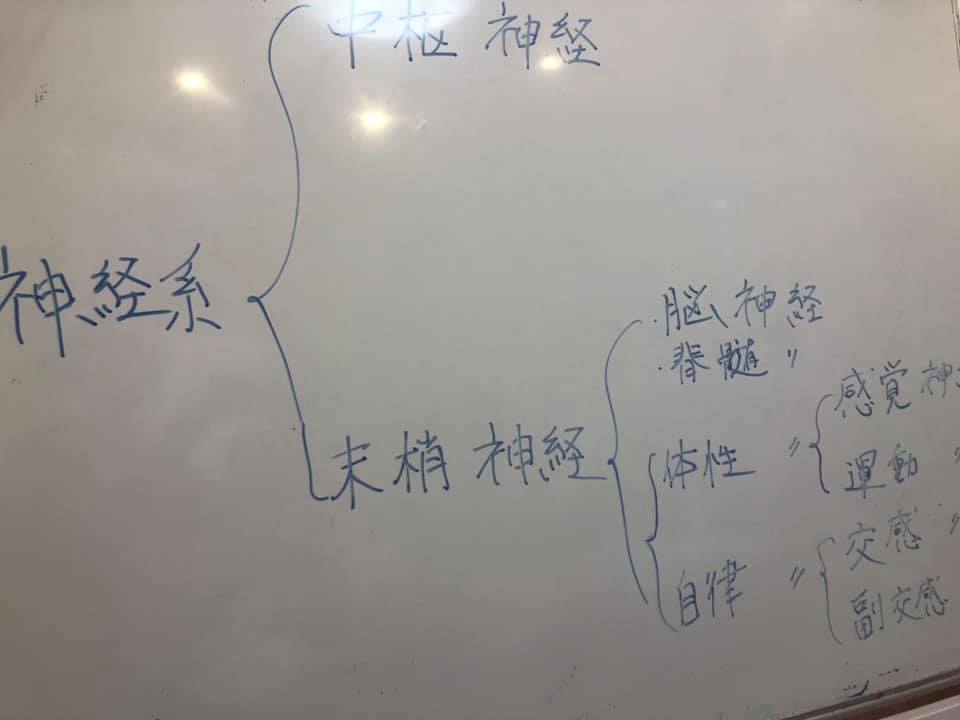 中枢神経
神経系
・脳神経
・脊髄 〃
感覚神
末梢神経
体性 〃
運動 〃
交感 〃
自律 〃
副交感